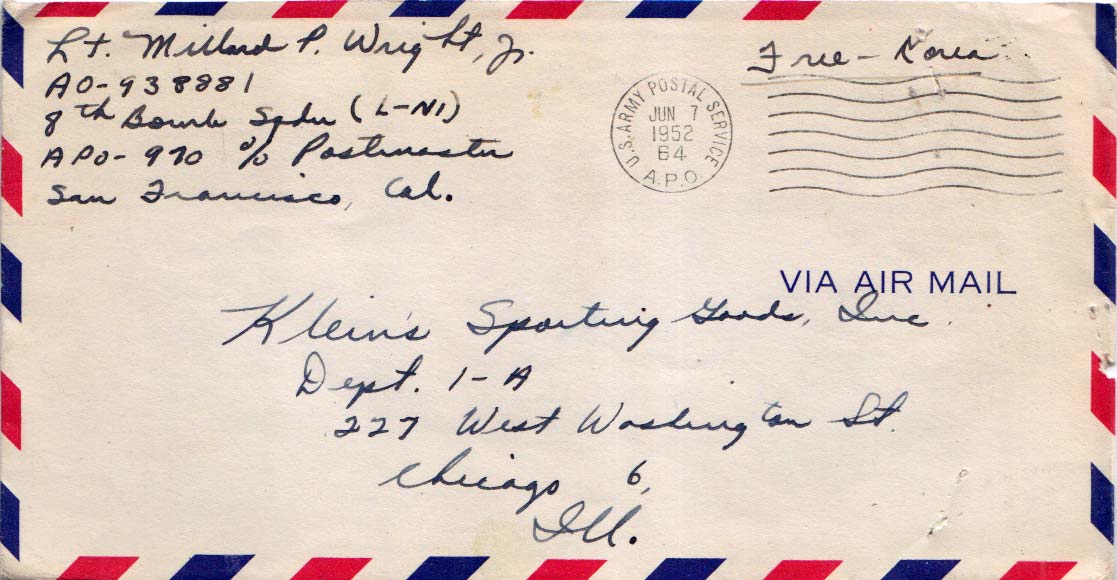 Lt. Millard P. Wright, Jr.
AO-938881
8th Bomb Sqdn (L-NI)
APO-970 c/o Postmaster
San Francisco, Cal.
Free - Korea
U.S. ARMY POSTAL SERVICE
JUN 7
1952
64
A.P.O.
VIA AIR MAIL
Klein's Sporting Goods, Inc.
Dept. 1-A
227 West Washington St.
Chicago 6,
Ill.